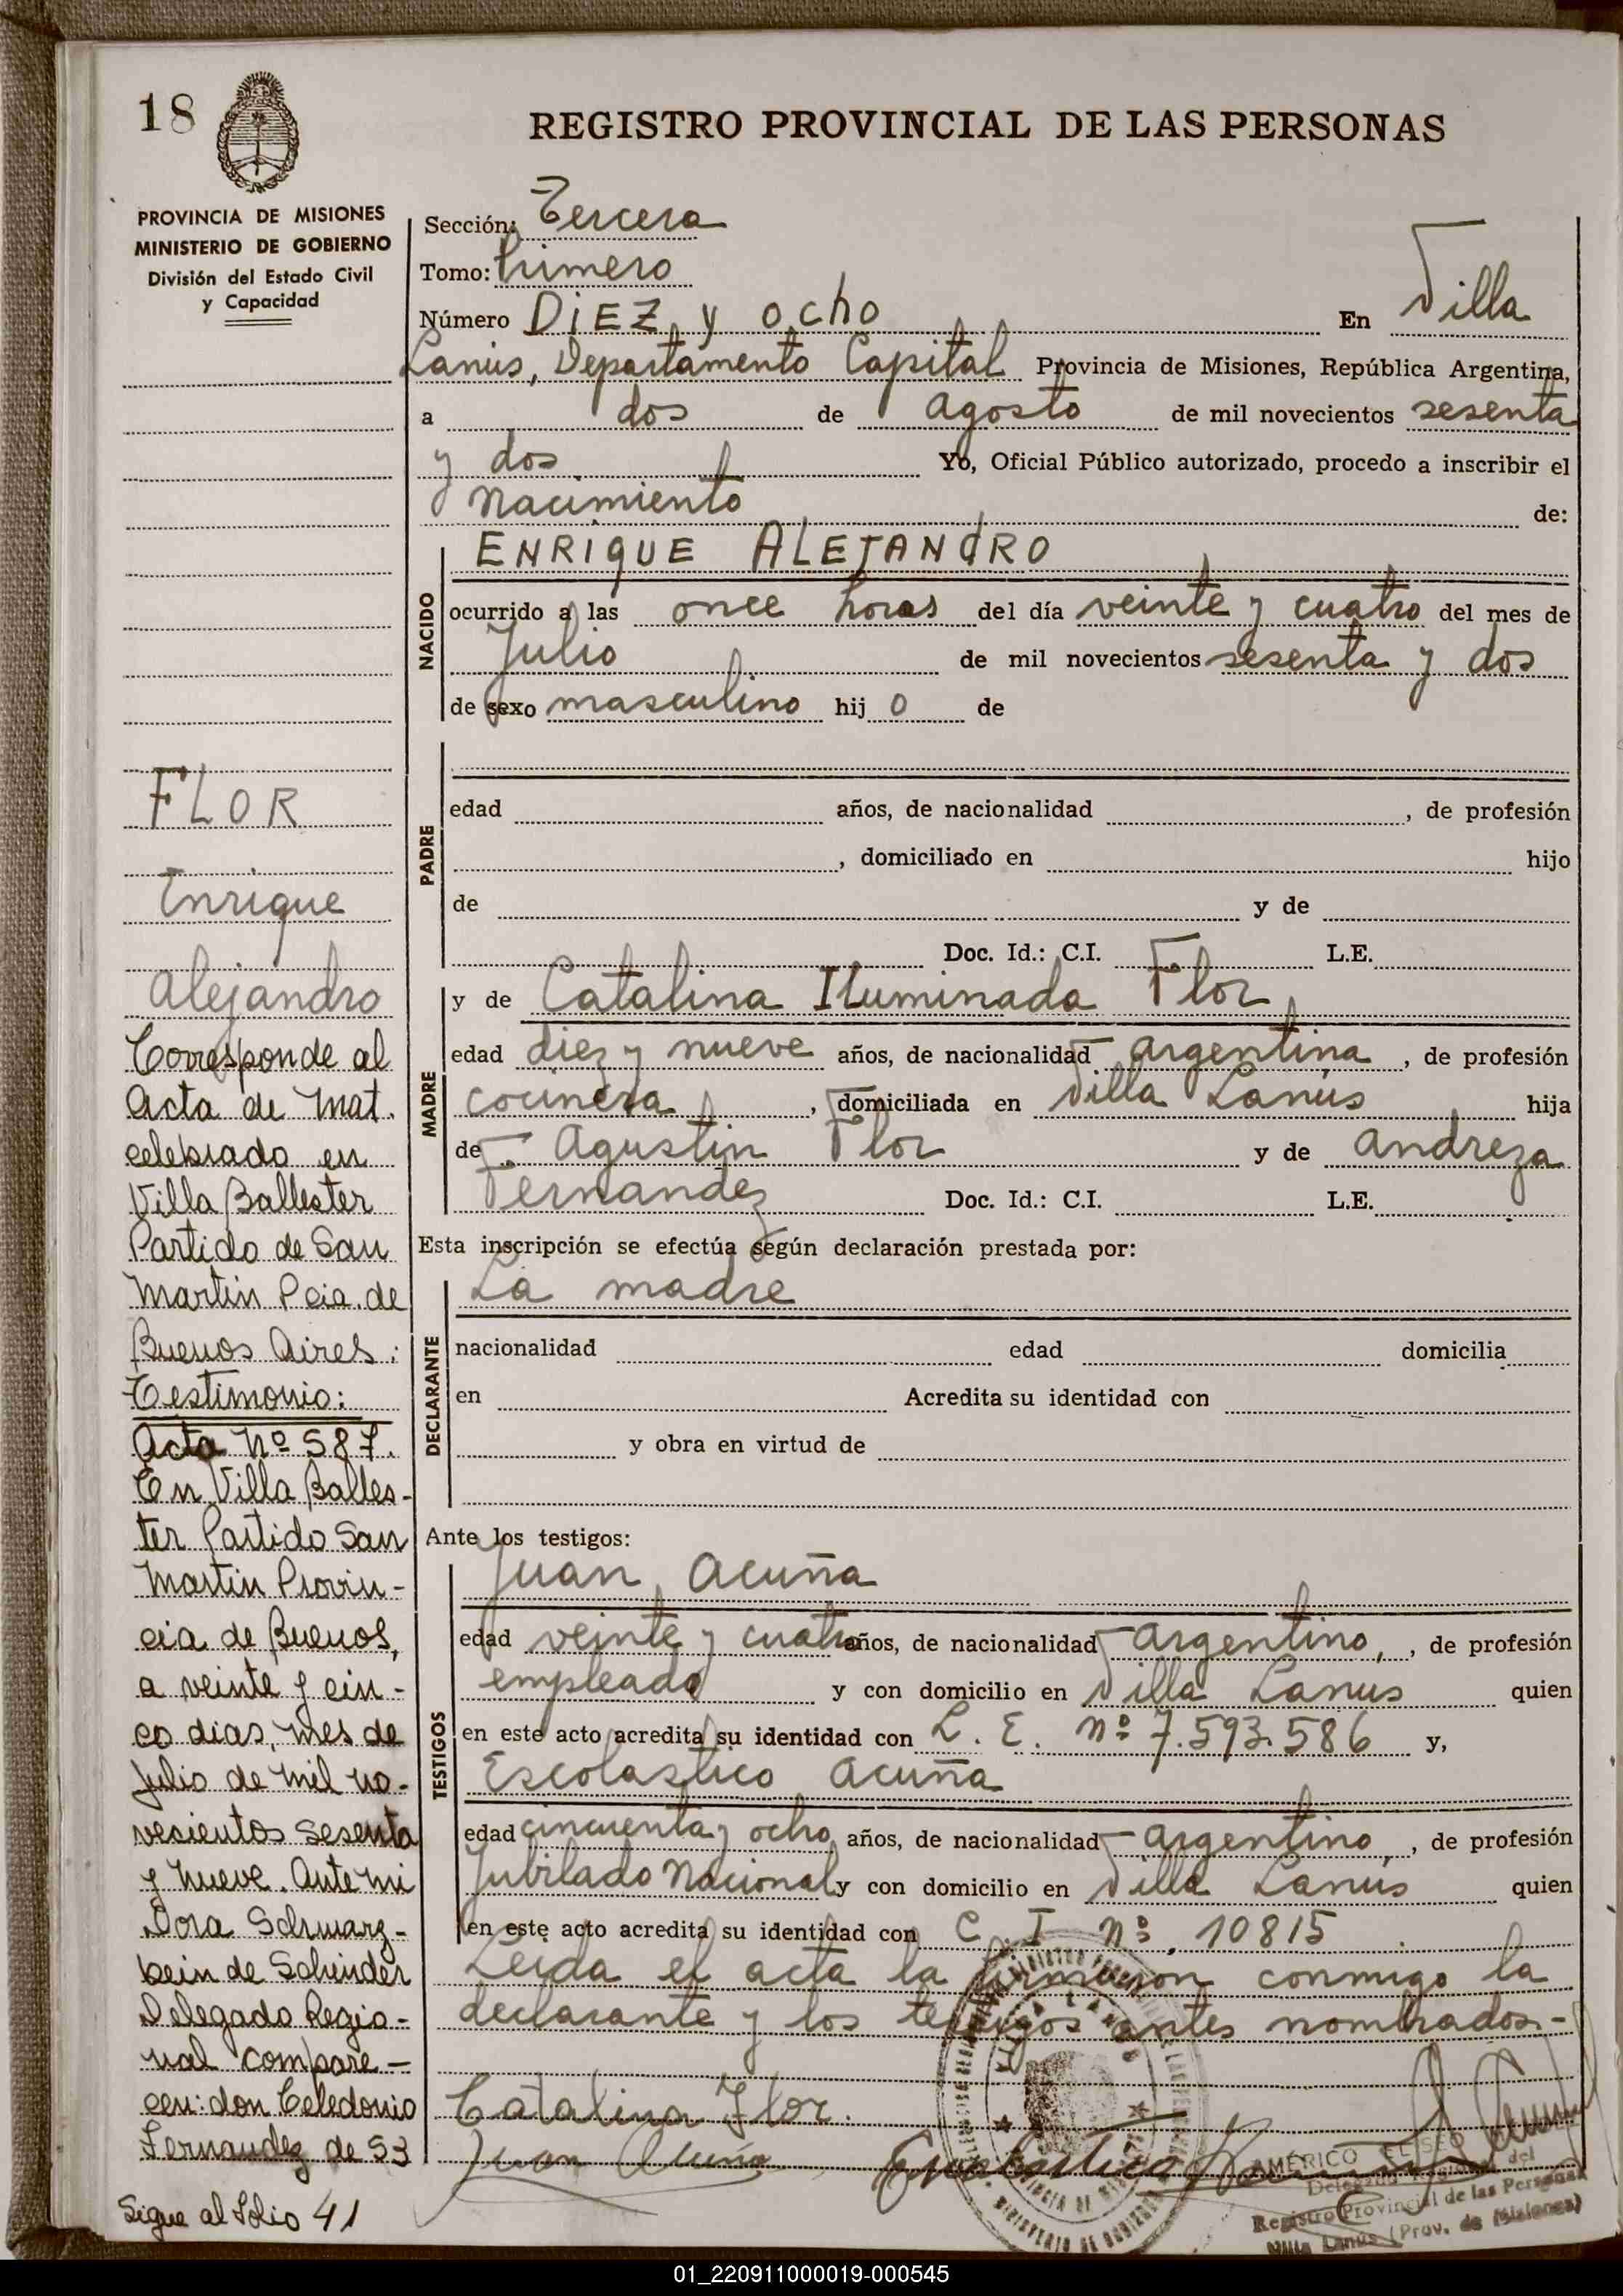 18
REGISTRO PROVINCIAL DE LAS PERSONAS
PROVINCIA DE MISIONES
MINISTERIO DE GOBIERNO
División del Estado Civil
y Capacidad
Sección: Tercera
Tomo: Primero
Número DIEZ y ocho En Villa
Lanús, Departamento Capital Provincia de Misiones, República Argentina,
a dos de agosto de mil novecientos sesenta
y dos Yo, Oficial Público autorizado, procedo a inscribir el
Nacimiento de:
NACIDO
ENRIQUE ALEJANDRO
ocurrido a las once horas del día veinte y cuatro del mes de
Julio de mil novecientos sesenta y dos
de sexo masculino hij o de
PADRE
edad años, de nacionalidad , de profesión
, domiciliado en hijo
de y de
Doc. Id.: C.I. L.E.
MADRE
y de Catalina Iluminada Flor
edad diez y nueve años, de nacionalidad argentina , de profesión
cocinera , domiciliada en Villa Lanús hija
de Agustin Flor y de Andreza
Fernandez Doc. Id.: C.I. L.E.
Esta inscripción se efectúa según declaración prestada por:
DECLARANTE
La madre
nacionalidad edad domicilia
en Acredita su identidad con
y obra en virtud de
Ante los testigos:
TESTIGOS
Juan Acuña
edad veinte y cuatro años, de nacionalidad argentino, , de profesión
empleado y con domicilio en Villa Lanus quien
en este acto acredita su identidad con L. E. nº 7.593.586 y,
Escolastico Acuña
edad cincuenta y ocho años, de nacionalidad argentino, , de profesión
Jubilado Nacional y con domicilio en Villa Lanus quien
en este acto acredita su identidad con C. I nº. 10815
Leida el acta la firmaron conmigo la
declarante y los testigos antes nombrados.-
Catalina Flor.
Juan Acuña
AMÉRICO ELISEO
Delegado Regional del
Registro Provincial de las Personas
Villa Lanús (Prov. de Misiones)
FLOR
Enrique
Alejandro
Corresponde al
Acta de Mat.
celebrado en
Villa Ballester
Partido de San
Martin Pcia. de
Buenos Aires:
Testimonio:
Acta Nº 587.
En Villa Balles-
ter Partido San
Martin Provin-
cia de Buenos,
a veinte y cin-
co dias, mes de
Julio de mil no-
vecientos sesenta
y nueve. Ante mi
Dora Schwarz-
bein de Schinder
Delegado Regio-
nal compare-
cen: don Celedonio
Fernandez de 53
Sigue al folio 41
01_220911000019-000545